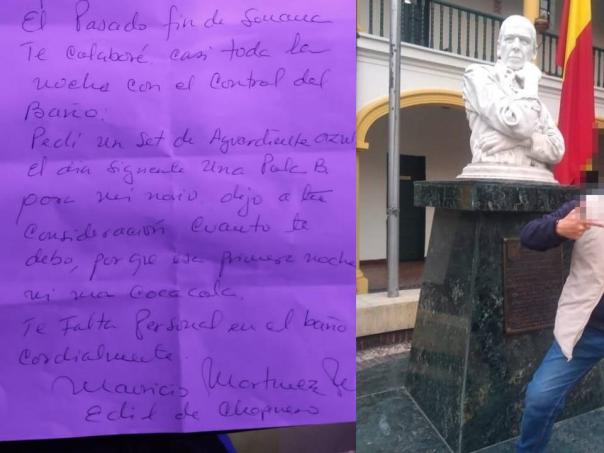 El Pasado fin de Semana
Te Colaboré casi toda la
noche con el Control del
Baño:
Pedí un Set de Aguardiente azul
El día siguiente una Pola B.
para mi novio, dejo a tu
Consideración Cuanto te
debo, por que esa primera noche
ni una Cocacola.
Te Falta Personal en el baño
Cordialmente.
Mauricio Martinez
Edil de Chapinero